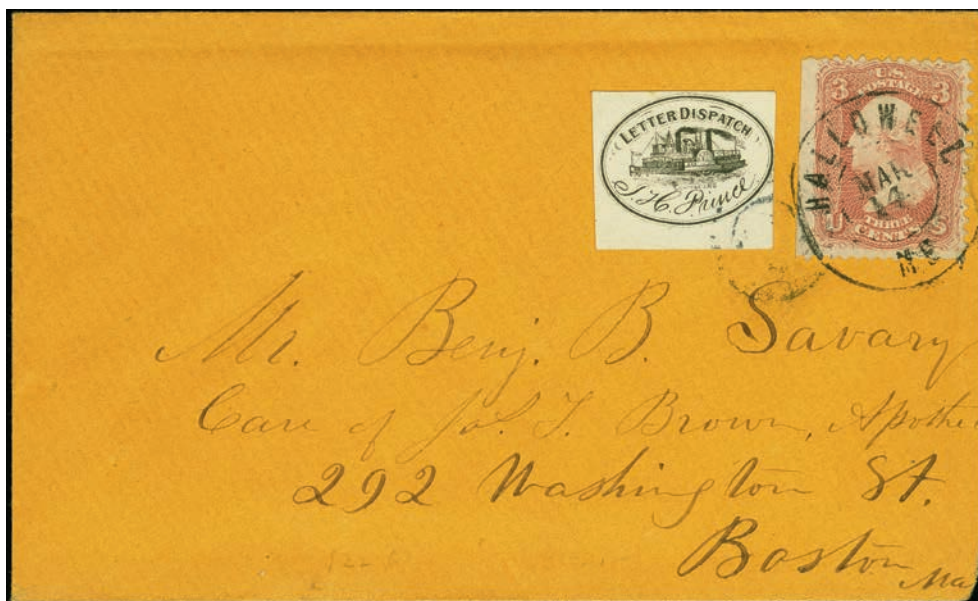 LETTER DISPATCH
J.H. Prince
3 U.S. 3
POSTAGE
THREE
CENTS
HALLOWELL
MAR
14
ME
Mr. Benj. B. Savary
Care of Jos. T. Brown, Apothe
292 Washington St.
Boston
Ma